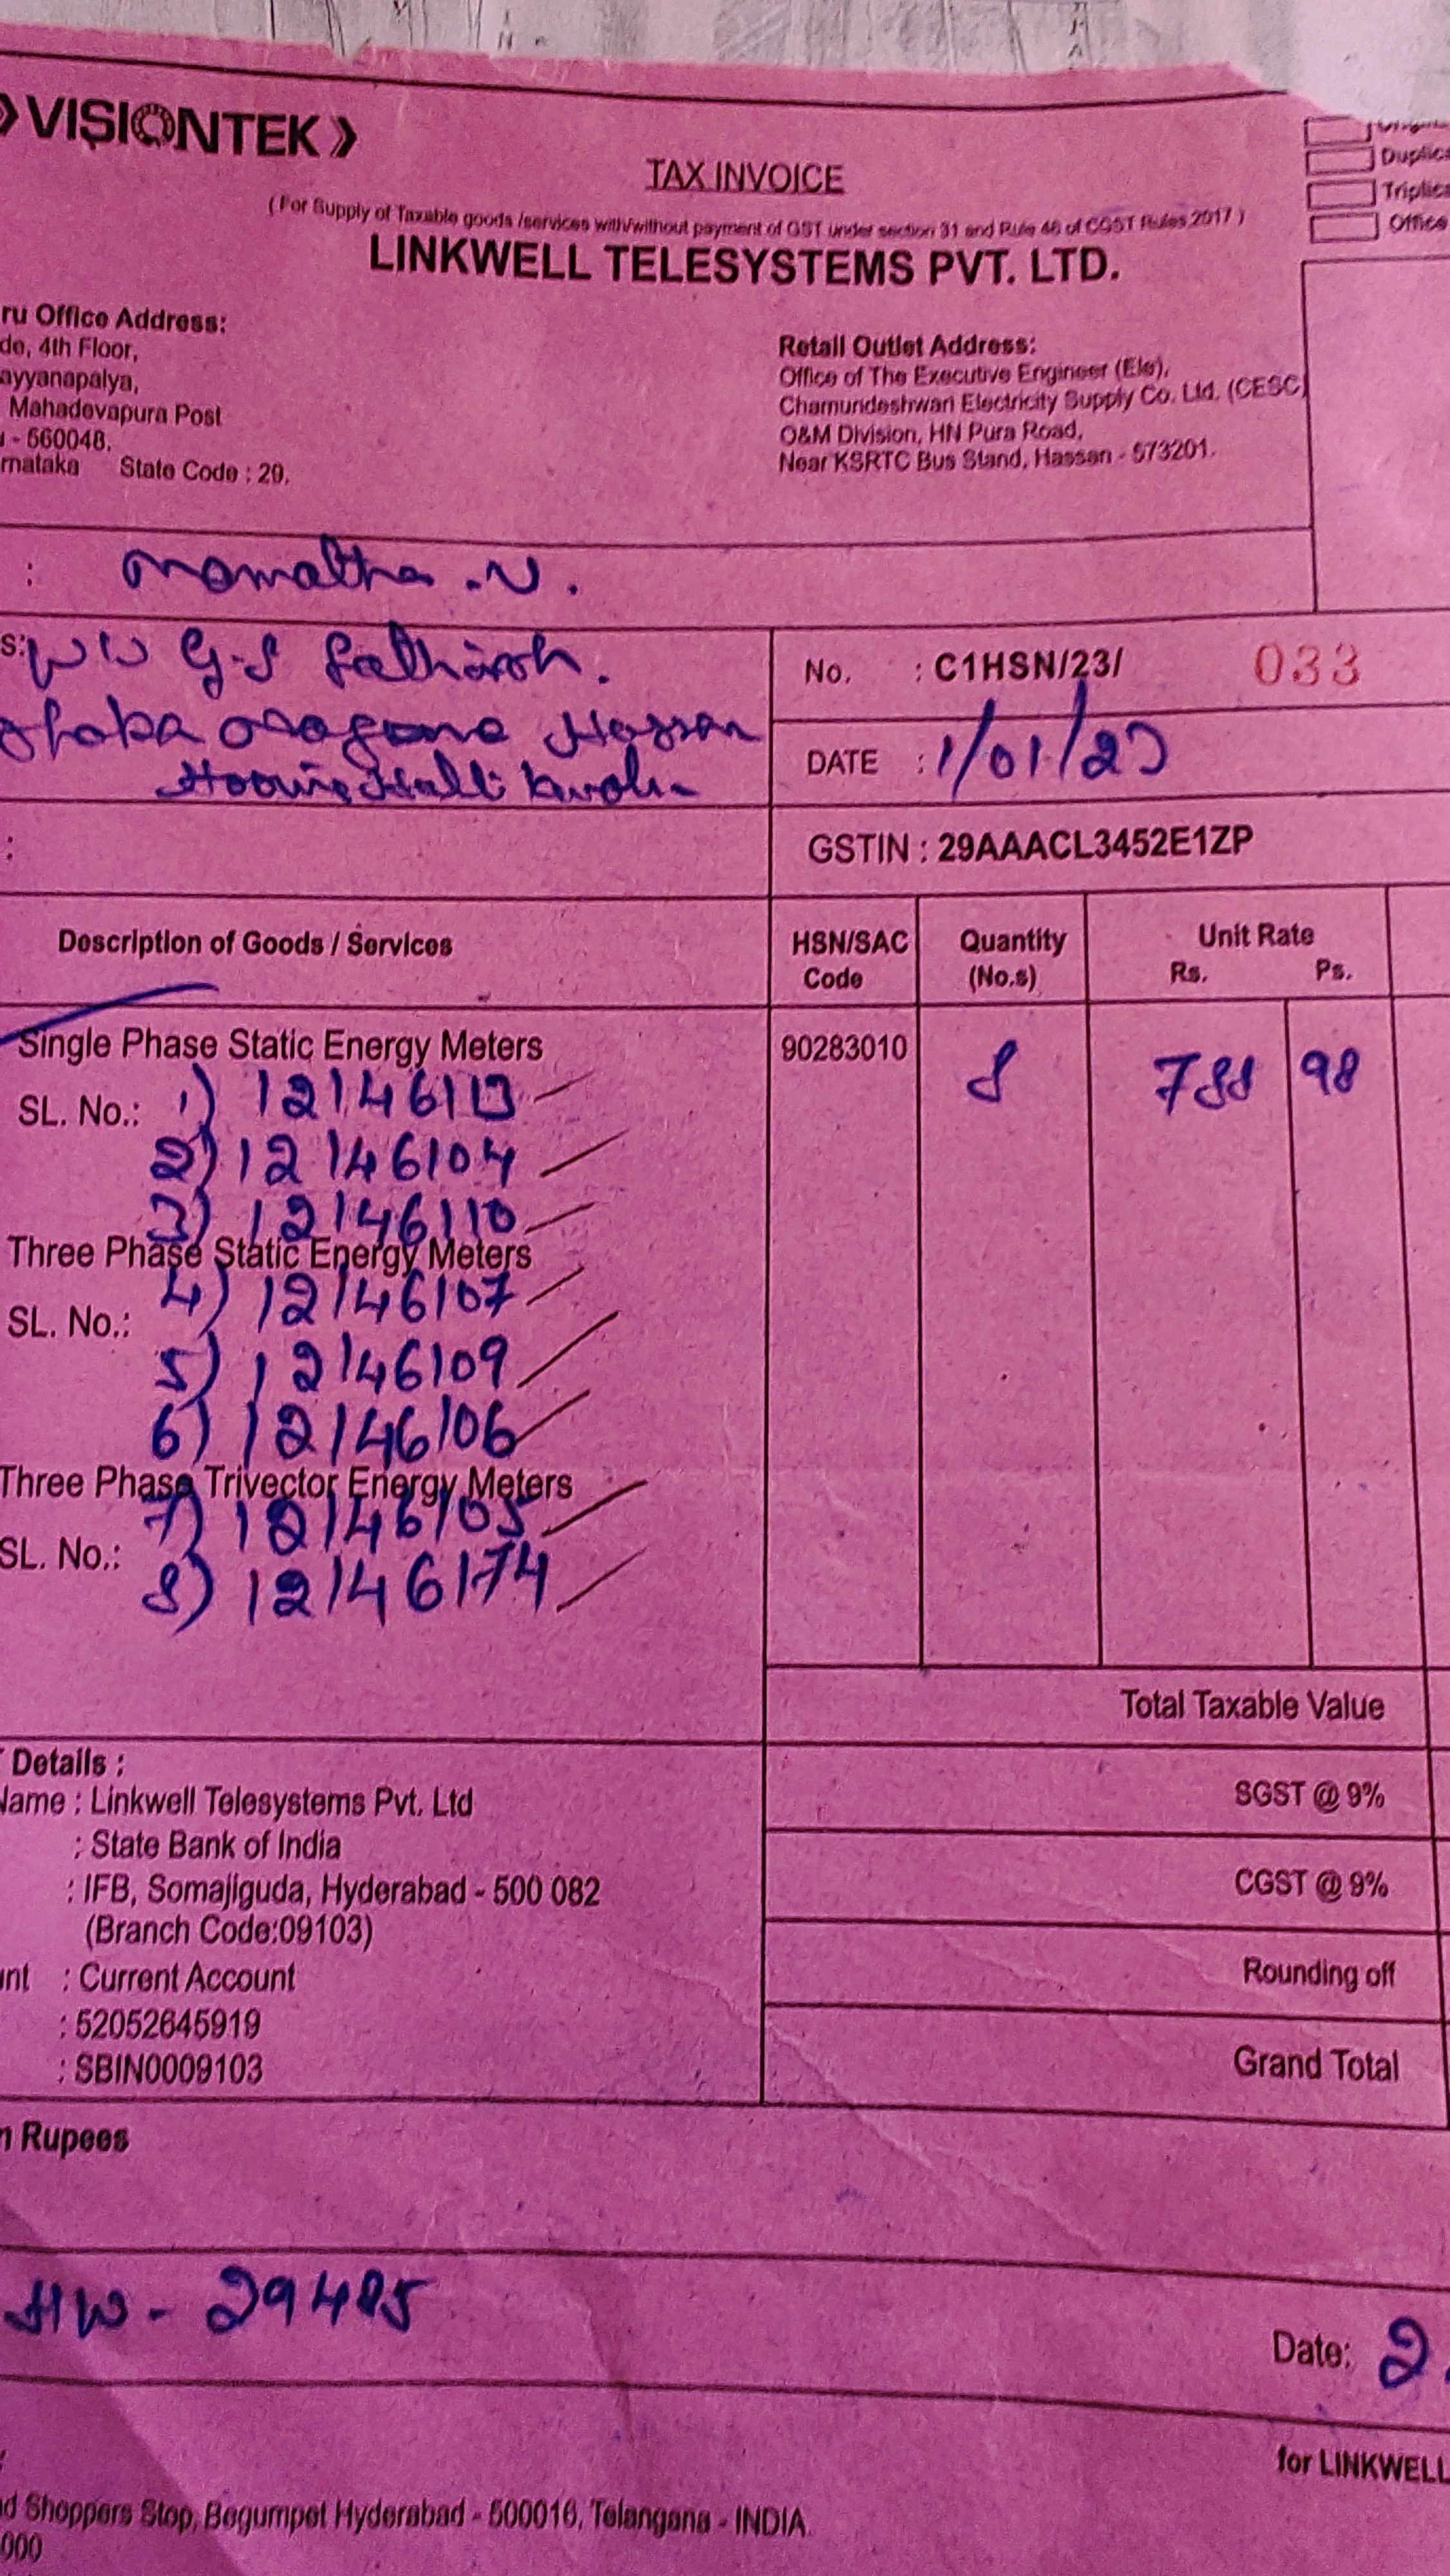 VISIONTEK
TAX INVOICE
Duplica
Triplica
Office
( For Supply of Taxable goods /services with/without payment of GST under section 31 and Rule 46 of CGST Rules 2017 )
LINKWELL TELESYSTEMS PVT. LTD.
ru Office Address:
de, 4th Floor,
ayyanapalya,
Mahadevapura Post
- 560048.
rnataka State Code : 29.
Retail Outlet Address:
Office of The Executive Engineer (Ele),
Chamundeshwari Electricity Supply Co. Ltd. (CESC)
O&M Division, HN Pura Road,
Near KSRTC Bus Stand, Hassan - 573201.
: Mamatha .N.
s: W/O G.S
Hassan
No. : C1HSN/23/ 033
DATE : 1/01/23
: GSTIN : 29AAACL3452E1ZP
Description of Goods / Services HSN/SAC Code Quantity (No.s) Unit Rate Rs. Ps.
Single Phase Static Energy Meters 90283010 8 788 98
SL. No.: 1) 12146113
2) 12146104
3) 12146110
Three Phase Static Energy Meters
4) 12146107
SL. No.:
5) 12146109
6) 12146106
Three Phase Trivector Energy Meters
7) 12146105
SL. No.:
8) 12146174
Total Taxable Value
SGST @ 9%
CGST @ 9%
Rounding off
Grand Total
Details :
Name : Linkwell Telesystems Pvt. Ltd
: State Bank of India
: IFB, Somajiguda, Hyderabad - 500 082
(Branch Code:09103)
unt : Current Account
: 52052645919
: SBIN0009103
n Rupees
HW - 29485
Date: 2.
for LINKWELL
d Shoppers Stop, Begumpet Hyderabad - 500016, Telangana - INDIA.
000